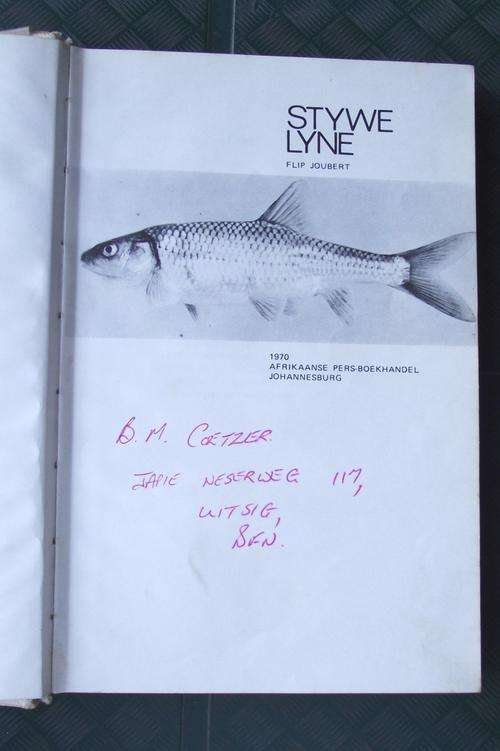 STYWE
LYNE
FLIP JOUBERT
1970
AFRIKAANSE PERS-BOEKHANDEL
JOHANNESBURG
B. M. COETZER.
JAPIE NESERWEG 117,
UITSIG,
BFN.